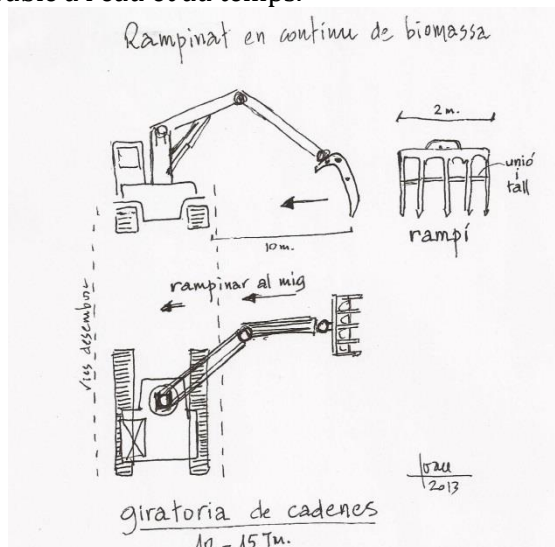 Rampinat en continu de biomassa
2 m.
unió
i
tall
rampí
10 m.
rampinar al mig
vies desembosc
Joau
2013
giratoria de cadenes